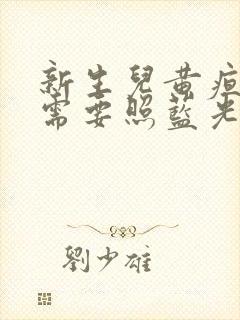 新生兒黃疸
需要照藍光
劉少雄